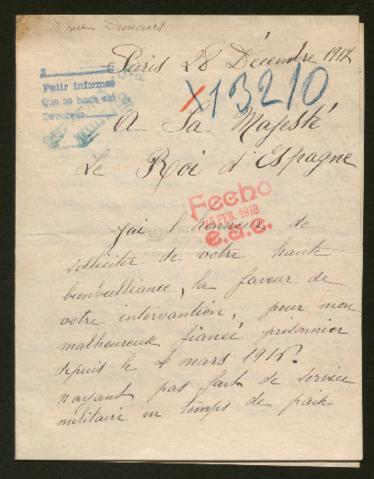 Paris 28 Décembre 1917
A
Pedir informes
Que se haga ahí
Devolver
X 13210
A Sa Majesté
Le Roi d'Espagne
Fecho
FEB. 1918
e.a.c.
J'ai l'honneur de
solliciter de votre haute
bienveillance, la faveur de
votre intervention, pour mon
malheureux fiancé prisonnier
depuis le 4 mars 1915.
n'ayant pas fait de service
militaire en temps de paix